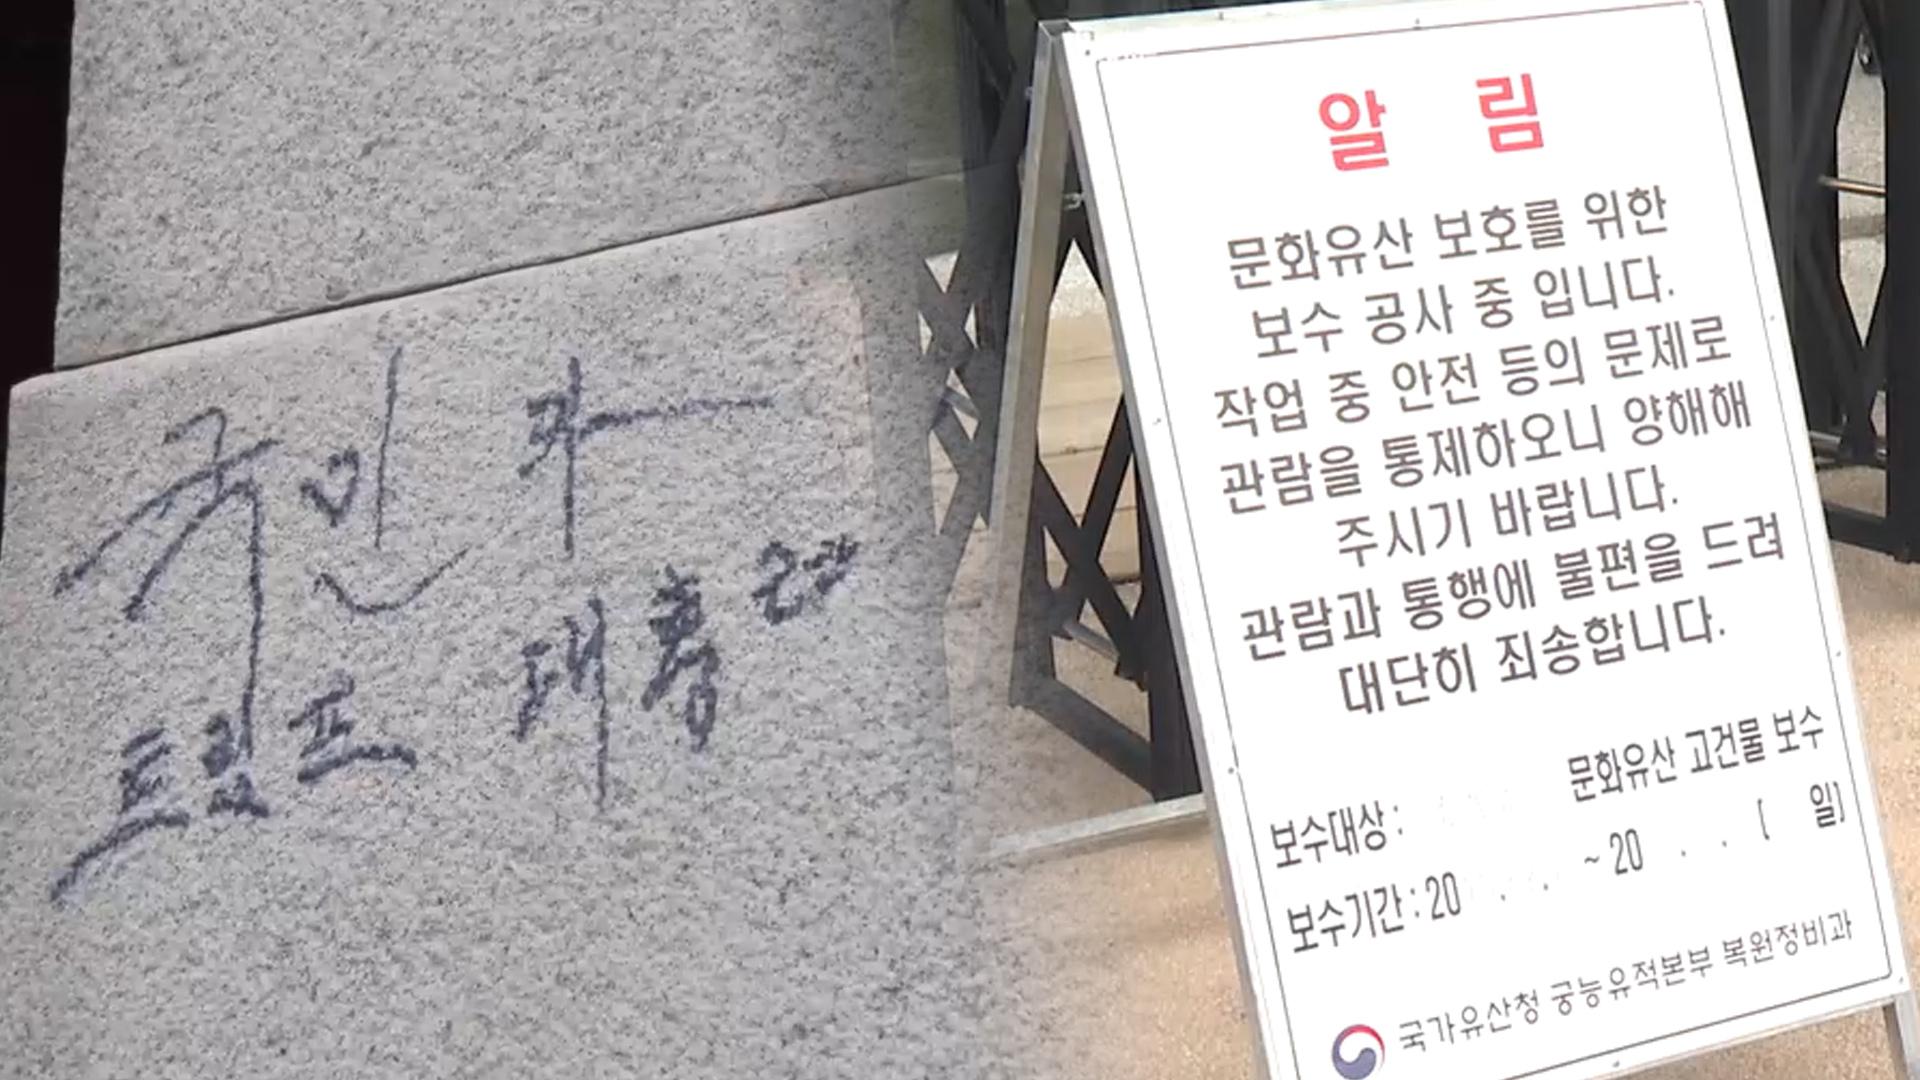 국민과
트럼프 대통령
알 림
문화유산 보호를 위한
보수 공사 중 입니다.
작업 중 안전 등의 문제로
관람을 통제하오니 양해해
주시기 바랍니다.
관람과 통행에 불편을 드려
대단히 죄송합니다.
보수대상 : 문화유산 고건물 보수
보수기간 : 20 . . ~ 20 . . ( 일)
국가유산청 궁능유적본부 복원정비과